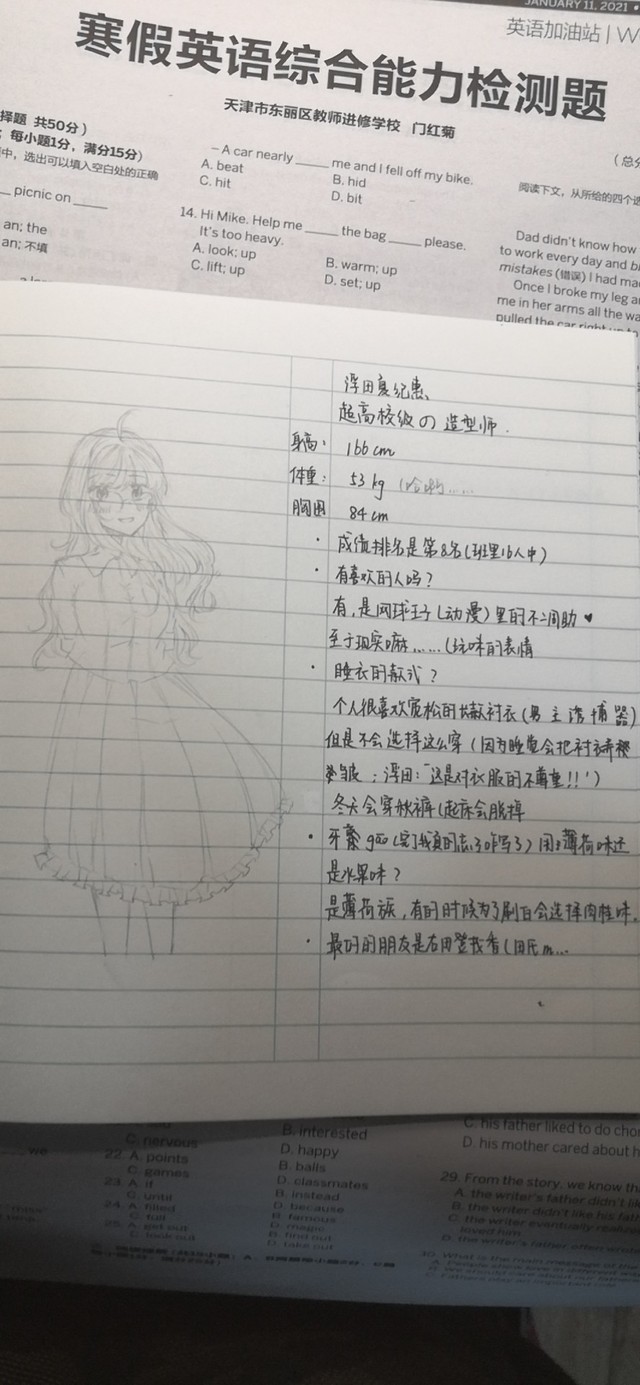 JANUARY 11, 2021
英语加油站 | W
寒假英语综合能力检测题
天津市东丽区教师进修学校 门红菊
择题 共50分)
每小题1分, 满分15分)
中, 选出可以填入空白处的正确
picnic on _____
an; the
an; 不填
– A car nearly _____ me and I fell off my bike.
A. beat B. hid
C. hit D. bit
14. Hi Mike. Help me _____ the bag _____ please.
It's too heavy.
A. look; up B. warm; up
C. lift; up D. set; up
(总分
阅读下文, 从所给的四个选
Dad didn't know how
to work every day and
mistakes (错误) I had ma
Once I broke my leg a
me in her arms all the wa
pulled the car right up to
浮田夏纪惠
超高校级の造型师.
身高: 166 cm
体重: 53 kg
胸围 84 cm
· 成绩排名是第8名(班里16人中)
· 有喜欢的人吗?
有, 是网球王子(动漫)里的不二周助 ♥
至于现实嘛……(玩味的表情
· 睡衣的款式?
个人很喜欢宽松的长款衬衣(男主诱捕器)
但是不会选择这么穿(因为睡觉会把衬衣弄
皱; 浮田:“这是对衣服的不尊重!!”)
冬天会穿秋裤(起床会脱掉
· 牙膏 (完了我真的忘了咋写了) 用薄荷味还
是水果味?
是薄荷族, 有的时候为了刷白会选择肉桂味.
· 最好的朋友是
C. nervous
B. interested
D. happy
22. A. points B. balls
C. games D. classmates
23. A. if B. instead
C. until D. because
24. A. filled B. famous
C. full D. magic
25. A. get out B. find out
C. look out D. take out
C. his father liked to do chor
D. his mother cared about h
29. From the story, we know th
A. the writer's father didn't lik
B. the writer didn't like his fath
C. the writer eventually realize
loved him
D. the writer's father often
30. What is the main message of the